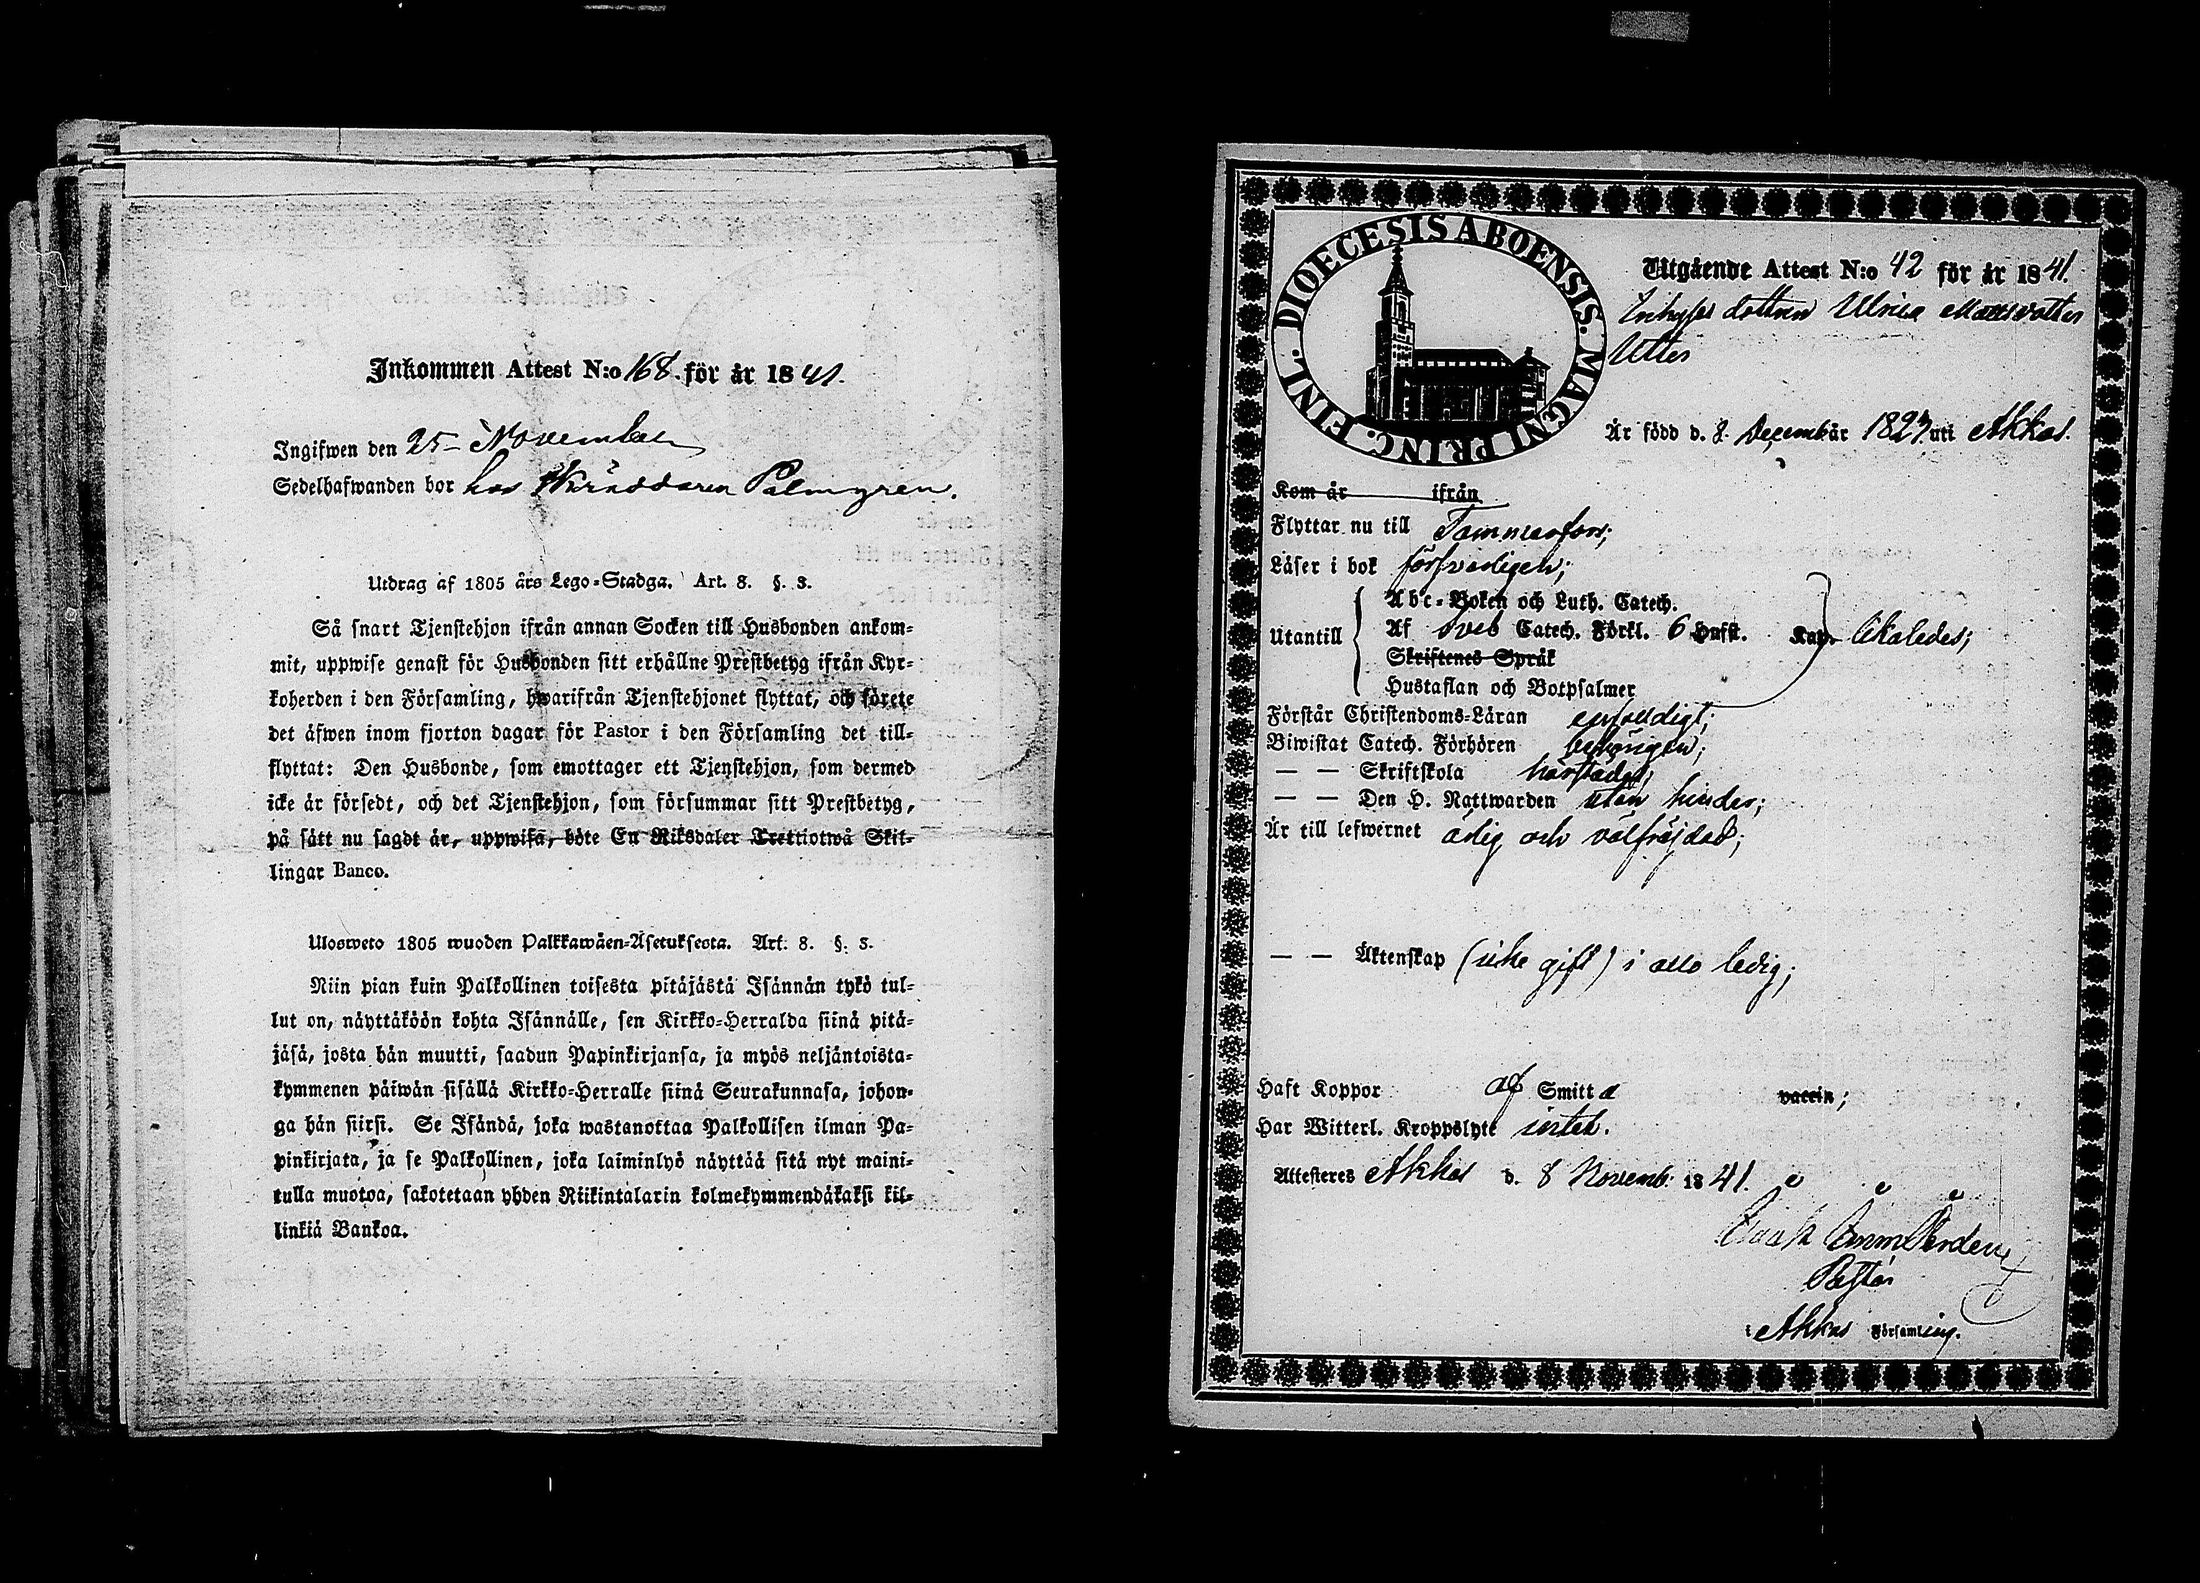 Inkommen Attest N:o 168 för år 1841.
Ingifwen den 25 November
Sedelhafwanden bor hos Skräddaren Palmgren.
Utdrag af 1805 års Lego-Stadga. Art. 8. §. 3.
Så snart Tjenstehjon ifrån annan Socken till Husbonden ankom-
mit, uppwise genast för Husbonden sitt erhållne Prestbetyg ifrån Kyr-
koherden i den Församling, hwarifrån Tjenstehjonet flyttat, och förete
det äfwen inom fjorton dagar för Pastor i den Församling det till-
flyttat: Den Husbonde, som emottager ett Tjenstehjon, som dermed
icke är försedt, och det Tjenstehjon, som försummar sitt Prestbetyg,
på sätt nu sagdt är, uppwisa, böte En Riksdaler Trettiotwå Skil-
lingar Banco.
Ulosweto 1805 wuoden Palkkawäen-Asetuksesta. Art. 8. §. 3.
Niin pian kuin Palkollinen toisesta pitäjästä Isännän tykö tul-
lut on, näyttäköön kohta Isännälle, sen Kirkko-Herralda siinä pitä-
jäsä, josta hän muutti, saadun Papinkirjansa, ja myös neljäntoista-
kymmenen päiwän sisällä Kirkko-Herralle siinä Seurakunnasa, johon-
ga hän siirsi. Se Isändä, joka wastanottaa Palkollisen ilman Pa-
pinkirjata, ja se Palkollinen, joka laiminlyö näyttää sitä nyt maini-
tulla muotoa, sakotetaan yhden Riikintalarin kolmekymmendäkaksi kil-
linkiä Bankoa.
DIOECESIS ABOENSIS. MAGNI PRINC. FINL.
Utgående Attest N:o 42 för år 1841.
Inhyses dottren Ulrica Mattsdotter
Utter
Är född d. 8. Decembär 1823 uti Akkas.
Kom år ifrån
Flyttar nu till Tammerfors;
Läser i bok försvarligen;
Utantill
Abc-Boken och Luth. Catech.
Af Sveb Catech. Förkl. 6 Hufst. Kap. likaledes;
Skriftenes Språk
Hustaflan och Botpsalmer
Förstår Christendoms-Läran enfaldigt;
Biwistat Catech. Förhören behörigen;
— — Skriftskola härstädes;
— — Den H. Nattwarden utan hinder;
Är till lefwernet ärlig och välfräjdad;
— — Äktenskap (icke gift) i allo ledig;
Haft Koppor af Smitta vaccin;
Har Witterl. Kroppslyte intet.
Attesteres Akkas d. 8 Novemb. 1841.
Pastor
i Akkas Församling.